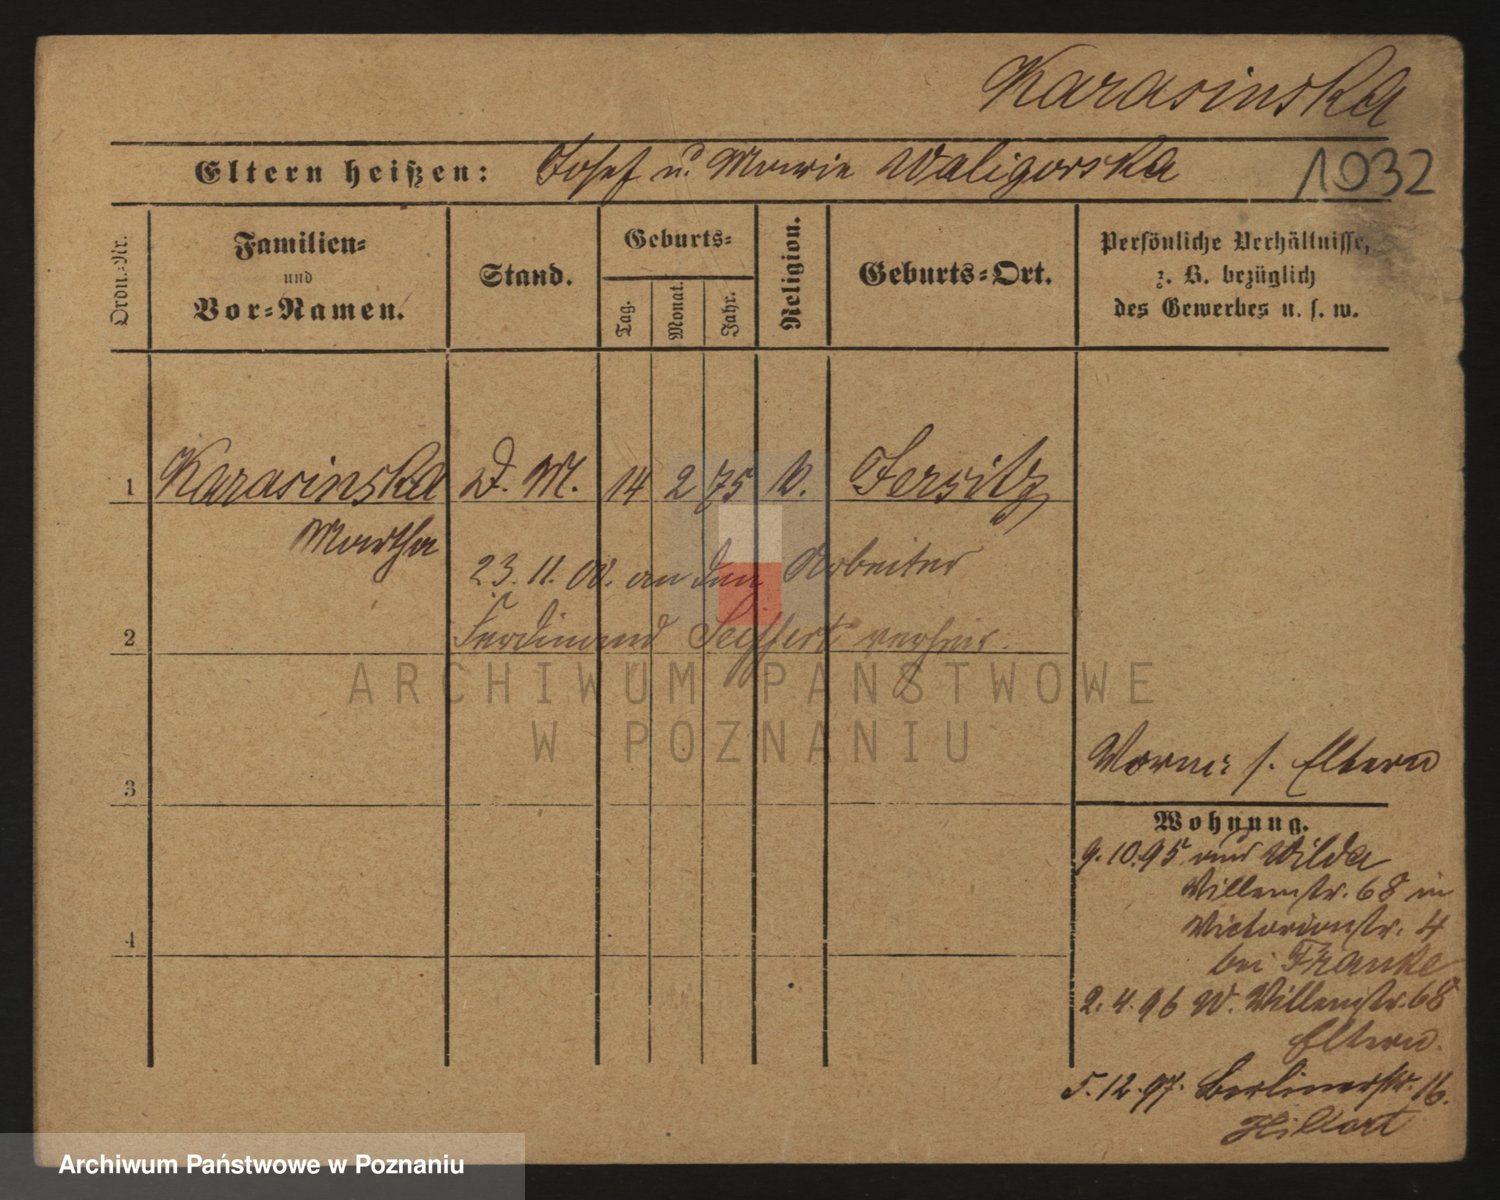 Karasinska
Eltern heißen: Josef u. Marie Waligorska
1032
Ordn.=Nr.
Familien=
und
Vor=Namen.
Stand.
Geburts=
Tag.
Monat.
Jahr.
Religion.
Geburts=Ort.
Persönliche Verhältnisse,
z. B. bezüglich
des Gewerbes u. s. w.
1 Karasinska D. M. 14 2 75 k. Jersitz
Martha
23. 11. 00. an den Arbeiter
2 Ferdinand Seiffert verheir.
ARCHIWUM PAŃSTWOWE
W POZNANIU
3
4
Vorm: s. Eltern
Wohnung.
9. 10. 95 aus Wilda
Villenstr. 68 in
Victoriastr. 4
bei Franke
2. 4. 96 W. Villenstr. 68
Eltern.
5. 12. 97. Berlinerstr. 16.
Archiwum Państwowe w Poznaniu